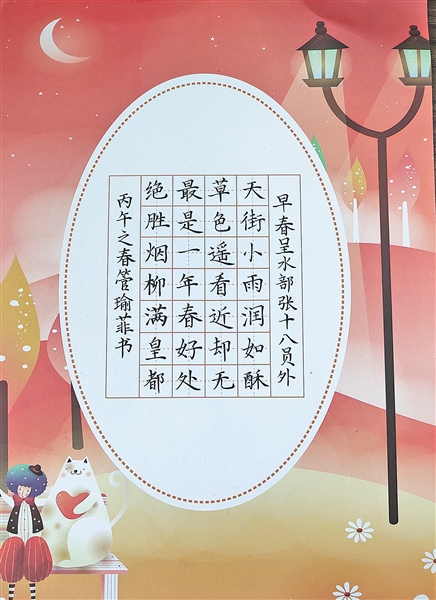 早春呈水部张十八员外
天街小雨润如酥
草色遥看近却无
最是一年春好处
绝胜烟柳满皇都
丙午之春管瑜菲书